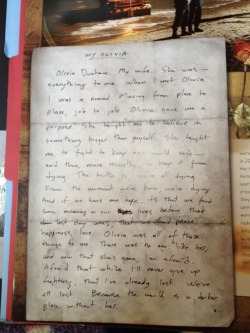 MY OLIVIA
Olivia Dunham. My wife. She was
everything to me. When I met Olivia
I was a nomad. Moving from place to
place, job to job. Olivia gave me a
purpose. She taught me to believe in
something bigger than myself. She taught
me to fight to keep our world safe
and then, more recently, to keep it from
dying. The truth is we're all dying.
From the moment we're born we're dying
And if we have we hope, it's that we find
some meaning in our lives before that
day last day comes. That we find peace,
happiness, love. Olivia was all of those
things to me. There was no one like her,
and now that she's gone, I'm afraid.
Afraid that while I'll never give up
fighting, that I've already lost. We've
all lost. Because the world is a darker
place without her.